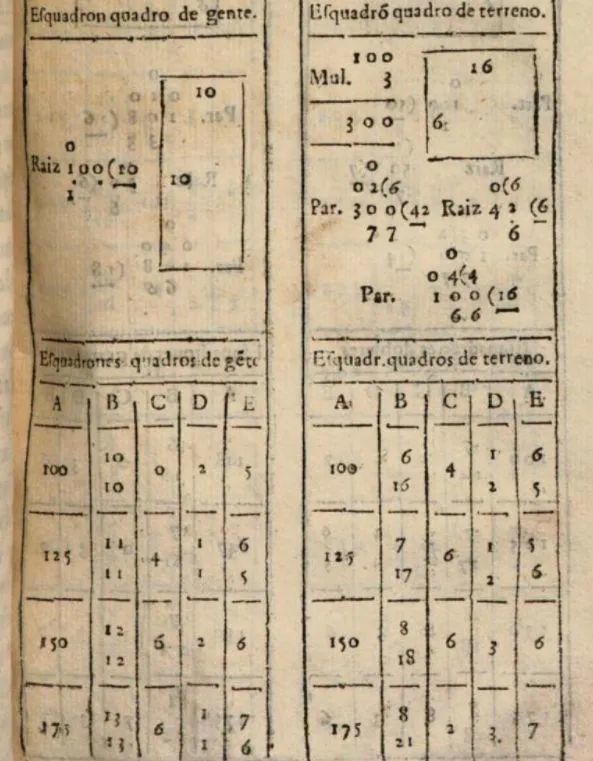 Esquadron quadro de gente.
10
10
0
Raiz 100(10
1
Esquadrō quadro de terreno.
100
Mul. 3
300
16
6
0
02(6
Par. 300(42
77
0(6
Raiz 42 (6
6
0
04(4
Par. 100(16
66
Esquadrones quadros de gētc
A B C D E
100 10 0 2 5
10
125 11 4 1 6
11 1 5
150 12 6 2 6
12
175 13 6 1 7
13 1 6
Esquadr.quadros de terreno.
A B C D E
100 6 4 1 6
16 2 5
125 7 6 1 5
17 2 6
150 8 6 3 6
18
175 8 2 3. 7
21